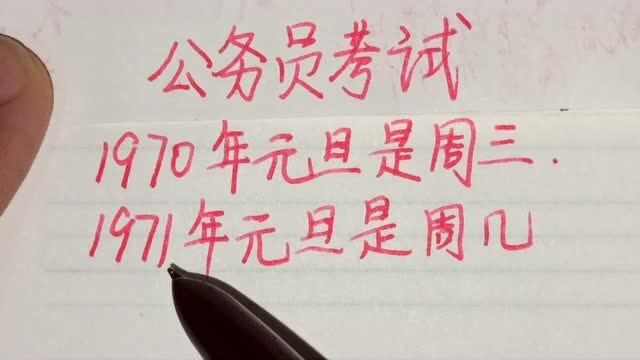 公务员考试
1970年元旦是周三.
1971年元旦是周几